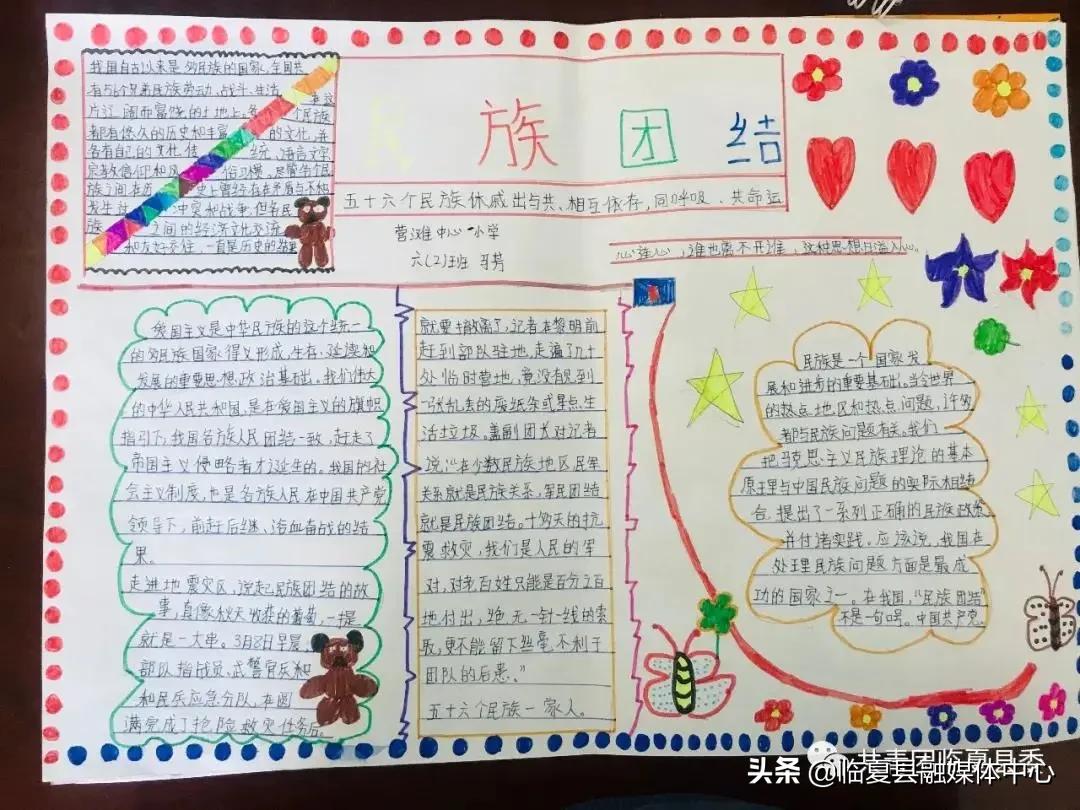 我国自古以来是多民族的国家,全国共
有56个兄弟民族劳动、战斗、生活
片辽阔而富饶的土地上。各个民族
都有悠久的历史和丰富的文化,并
各有自己的文化传统、语言文字
宗教信仰和风俗习惯。尽管各个民
族之间在历史上曾经存在矛盾与不和,
发生过冲突和战争,但各民
族之间的经济文化交流
和友好交往,一直是历史的结果
民族团结
五十六个民族休戚出与共、相互依存,同呼吸、共命运
营滩中心小学
六(2)班 马芳
心连心,谁也离不开谁,这种思想日溢入心。
爱国主义是中华民族的这个统一
的多民族国家得义形成,生存、延读和
发展的重要思想,政治基础。我们伟大
的中华人民共和国,是在爱国主义的旗帜
指引下,我国各方族人民团结一致,赶走了
帝国主义侵略者才诞生的。我国的社
会主义制度,也是各族人民在中国共产党
领导下,前赶后继、浴血奋战的结
果。
走进地震灾区,说起民族团结的故
事,真像秋天收获的葡萄,一提
就是一大串。3月8日早晨,
部队指战员、武警官兵和
和民兵应急分队,在圆
满完成了抢险救灾任务后。
就要撤离了,记者在黎明前
赶到部队驻地,走遍了几十
处临时营地,竟没有见到
一张乱丢的废纸条或星点生
活垃圾。盖副团长对记者
说:“在少数民族地区民军
关系就是民族关系,军民团结
就是民族团结。十多天的抗
震救灾,我们是人民的军
对,对老百姓只能是百分之百
地付出,绝无一针一线的索
取,更不能留下丝毫不利于
团队的后患。”
五十六个民族一家人。
民族是一个国家发
展和进步的重要基础。当今世界
的热点地区和热点问题,许多
都与民族问题有关。我们
把马克思主义民族理论的基本
原理与中国民族问题的实际相结
合,提出了一系列正确的民族政策
并付诸实践。应该说,我国在
处理民族问题方面是最成
功的国家之一。在我国,“民族团结”
不是一句吗。中国共产党
共青团临夏县委
头条 @临夏县融媒体中心